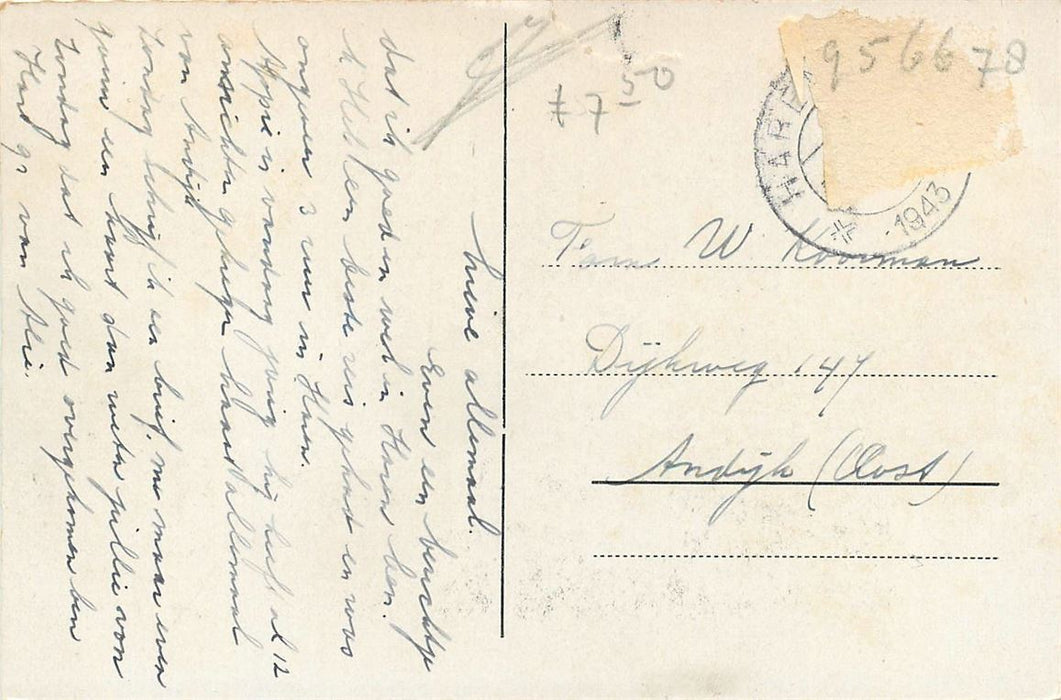 Lieve allemaal.
Even een berichtje
dat ik goed en wel in Haren ben.
'k Heb een beste reis gehad en was
ongeveer 3 uur in Haren.
Appie is vandaag jarig hij heeft al 12
ansichten gekregen haast allemaal
van Andijk
Zondag schrijf ik een brief, nu maar even
gauw een kaart dan weten jullie voor
Zondag dat ik goed overgekomen ben
Hart. gr van Alie.
£ 7 50
956678
HARE
1943
Fam W. Kooiman
Dijkweg 147
Andijk (Oost)